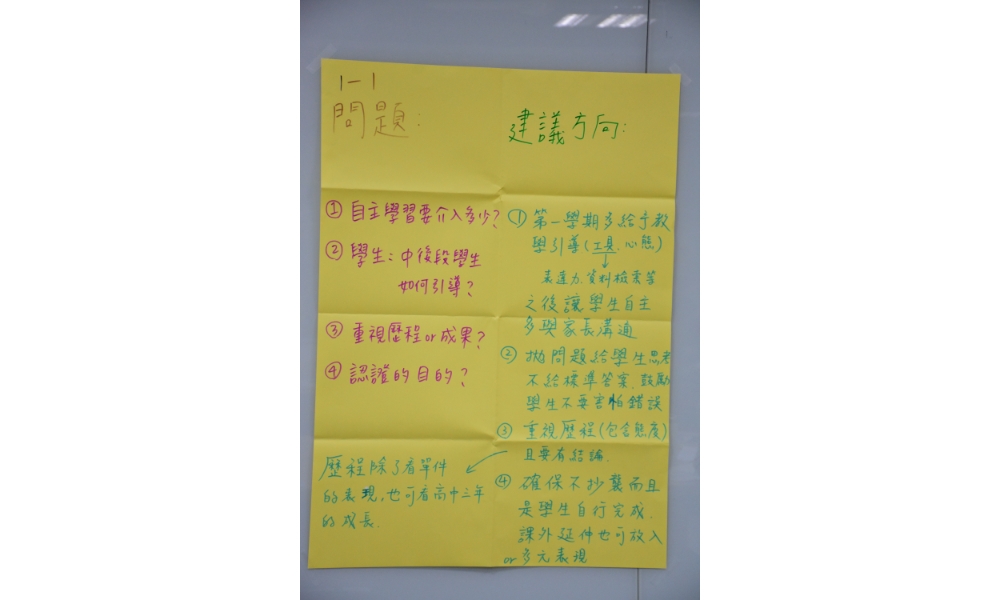 1-1
問題:
① 自主學習要介入多少?
② 學生:中後段學生
如何引導?
③ 重視歷程or成果?
④ 認證的目的?
歷程除了看單件
的表現,也可看高中三年
的成長.
建議方向:
① 第一學期多給予教
學引導(工具.心態)
↓
表達力.資料檢索等
之後讓學生自主
多與家長溝通
② 拋問題給學生思考
不給標準答案.鼓勵
學生不要害怕錯誤
③ 重視歷程(包含態度)
且要有結論.
④ 確保不抄襲而且
是學生自行完成.
課外延伸也可放入
or多元表現